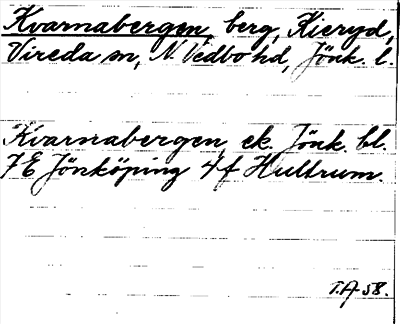 Kvarnabergen, berg, Kieryd,
Vireda sn, N. Vedbo hd, Jönk. l.
Kvarnabergen ek. Jönk. bl.
7E Jönköping 4f Hultrum.
T.A. 58.